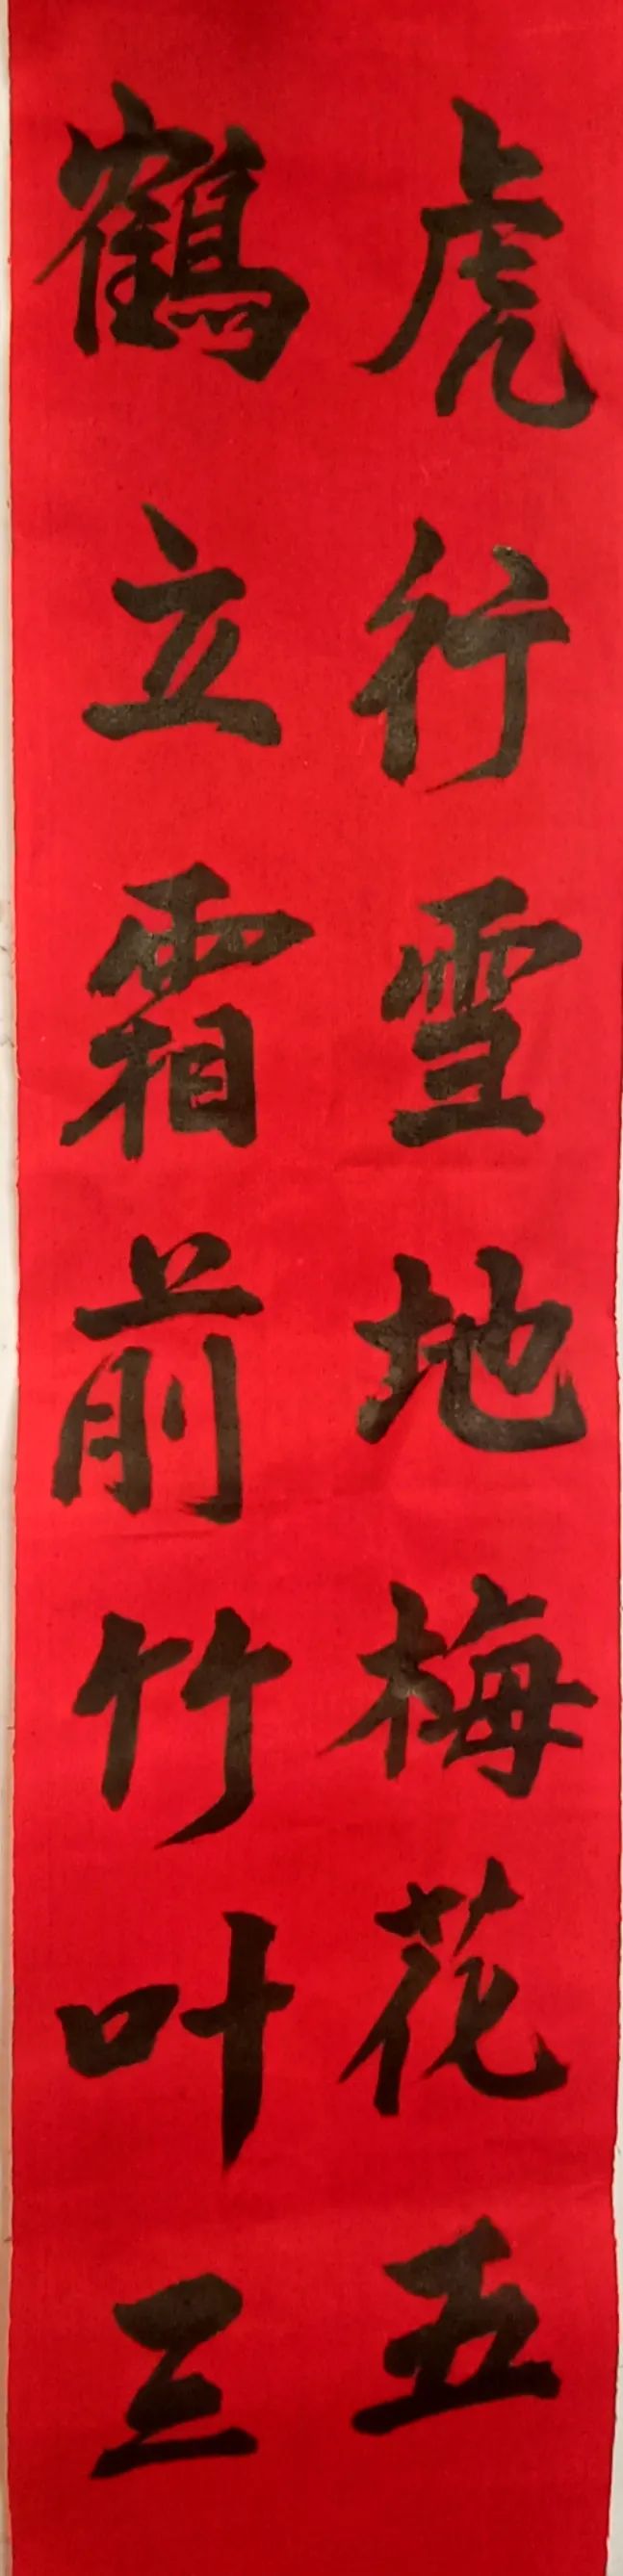 虎行雪地梅花五
鶴立霜前竹叶三